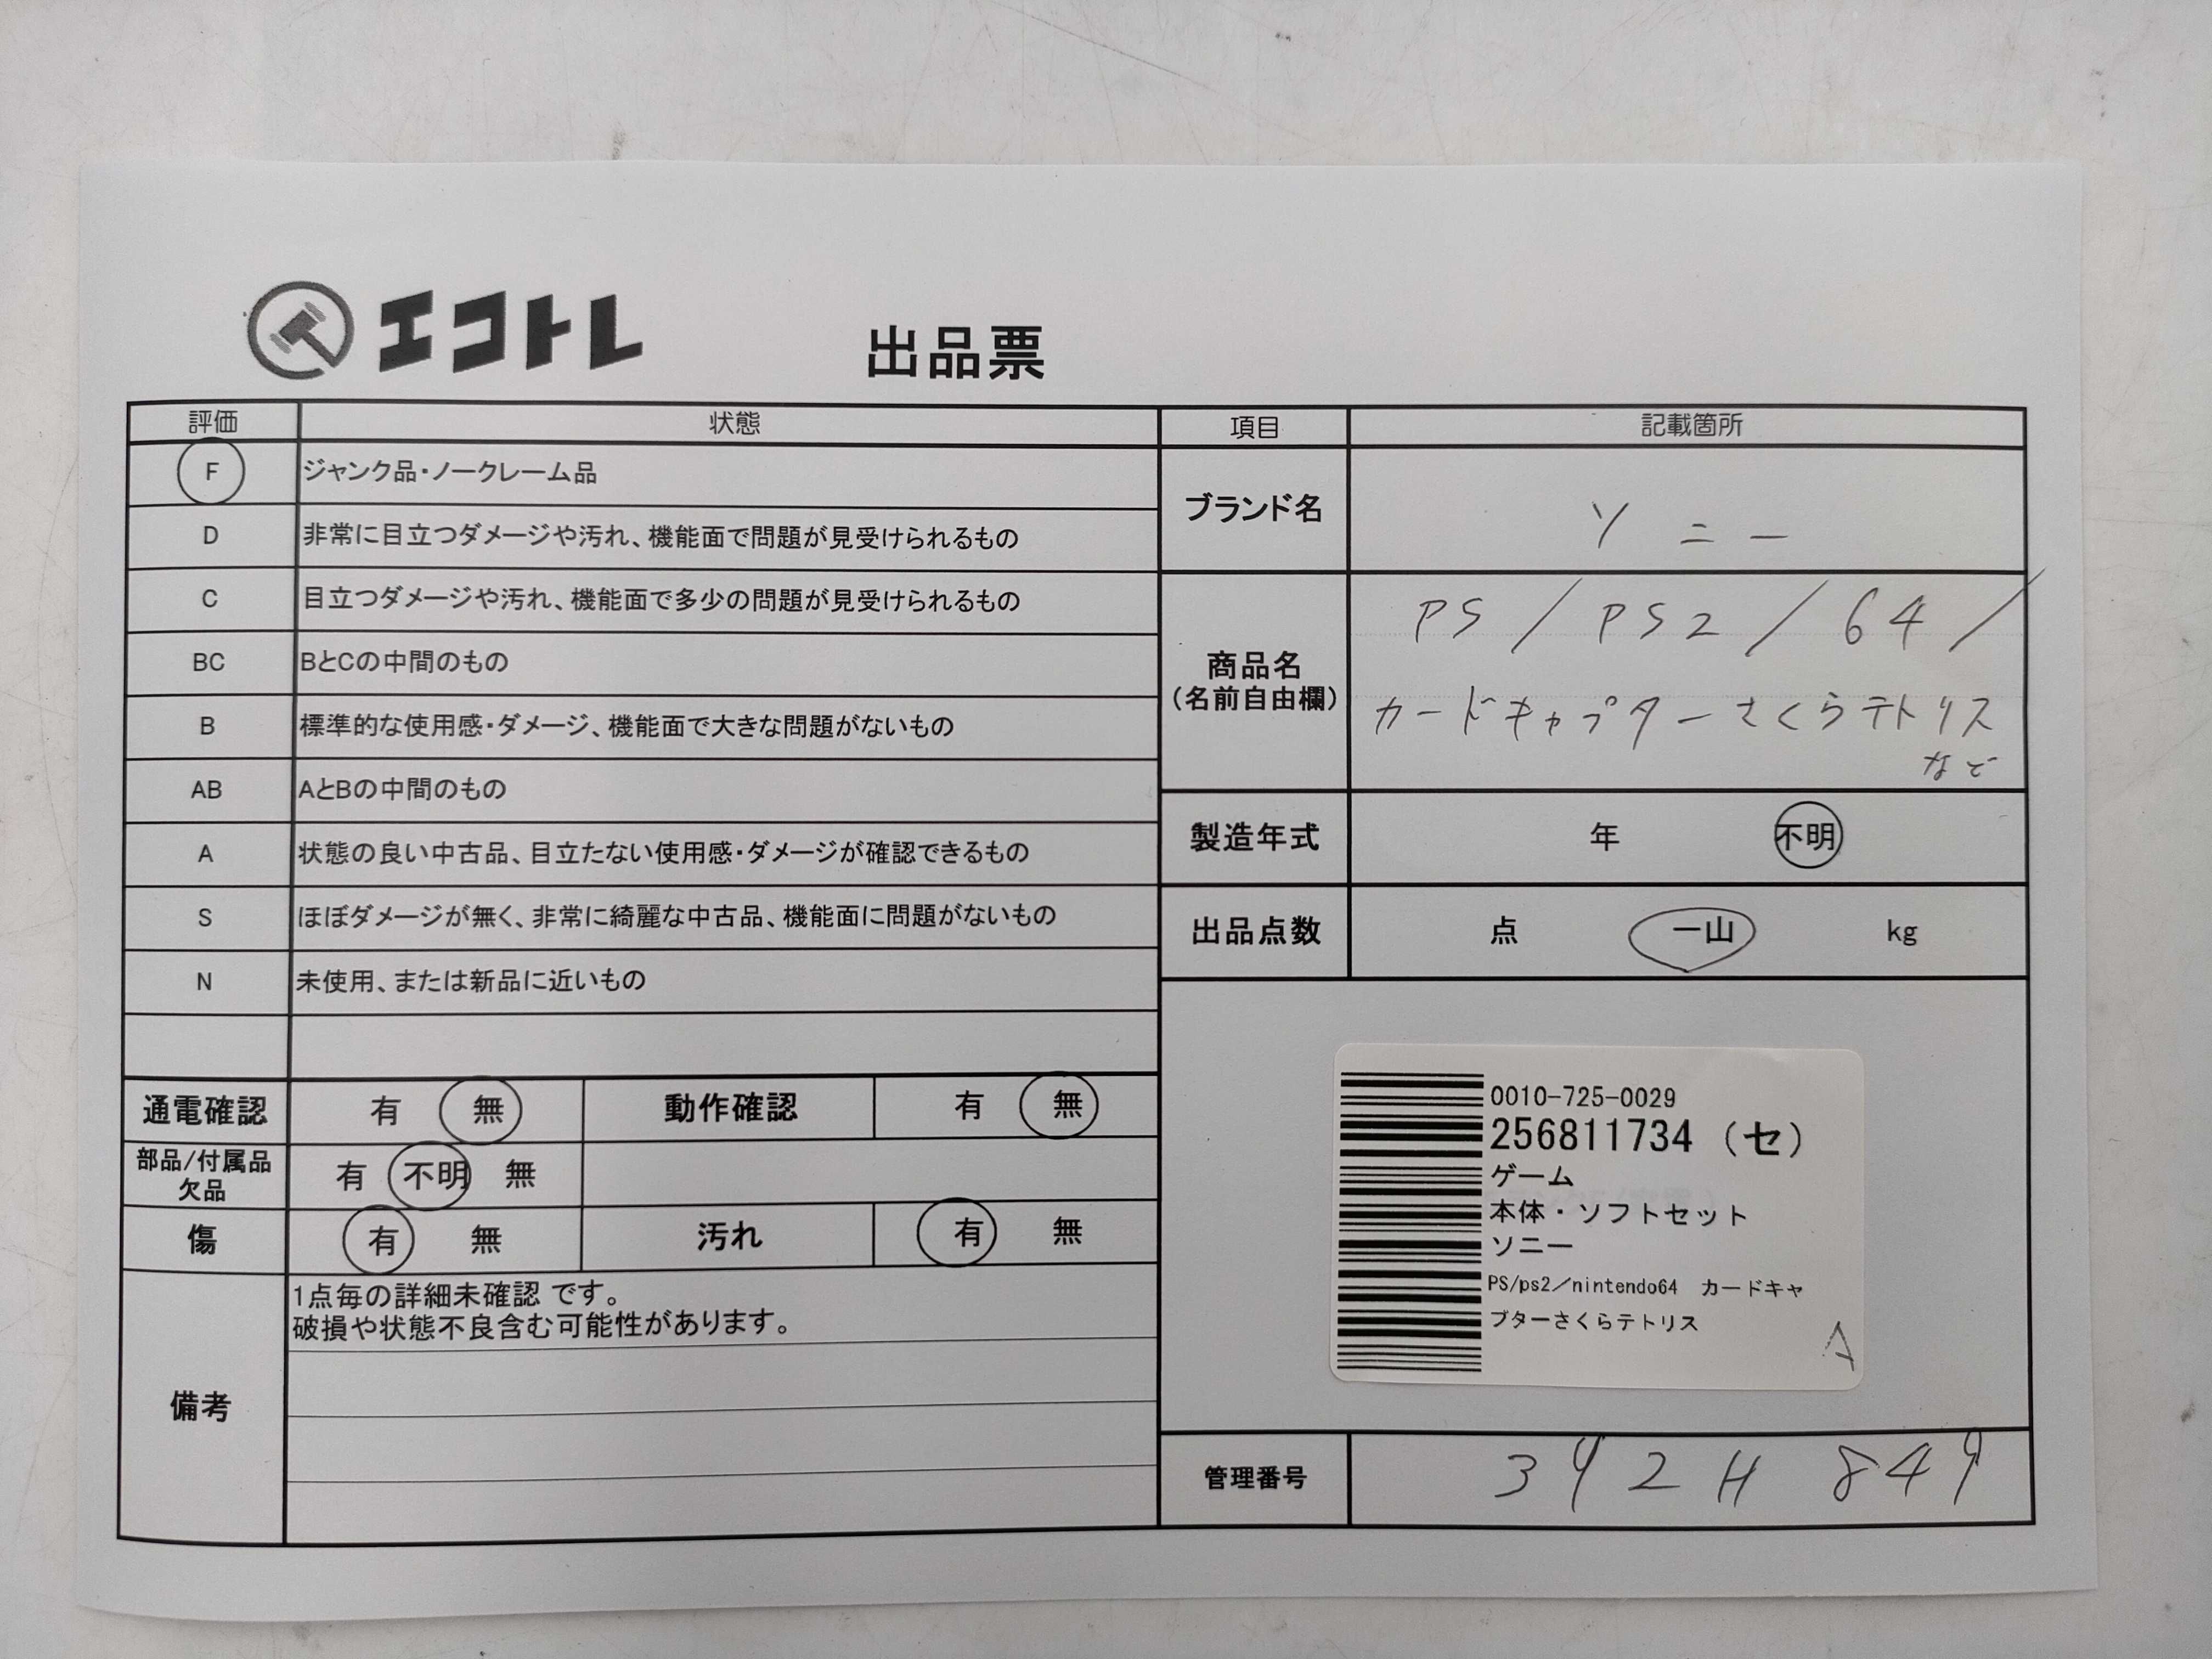 エコトレ
出品票
評価 状態
F ジャンク品・ノークレーム品
D 非常に目立つダメージや汚れ、機能面で問題が見受けられるもの
C 目立つダメージや汚れ、機能面で多少の問題が見受けられるもの
BC BとCの中間のもの
B 標準的な使用感・ダメージ、機能面で大きな問題がないもの
AB AとBの中間のもの
A 状態の良い中古品、目立たない使用感・ダメージが確認できるもの
S ほぼダメージが無く、非常に綺麗な中古品、機能面に問題がないもの
N 未使用、または新品に近いもの
通電確認 有 無 動作確認 有 無
部品/付属品
欠品
有 不明 無
傷 有 無 汚れ 有 無
備考
1点毎の詳細未確認 です。
破損や状態不良含む可能性があります。
項目 記載箇所
ブランド名 ソニー
商品名
(名前自由欄)
PS/PS2/64/
カードキャプターさくらテトリス
など
製造年式 年 不明
出品点数 点 一山 kg
0010-725-0029
256811734 (セ)
ゲーム
本体・ソフトセット
ソニー
PS/ps2/nintendo64 カードキャ
プターさくらテトリス
A
管理番号 392H 849